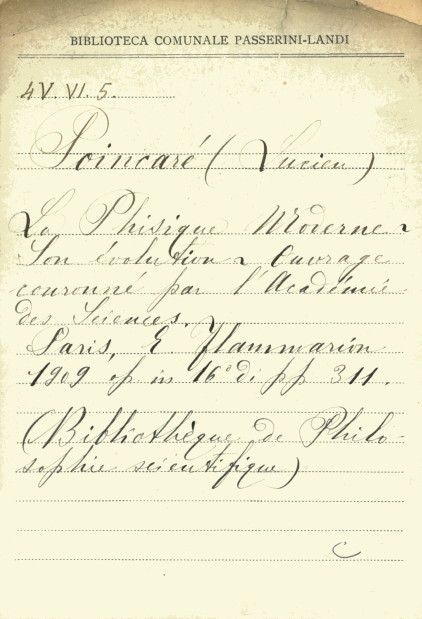 BIBLIOTECA COMUNALE PASSERINI-LANDI
4V. VI. 5.
Poincaré (Lucien)
La Phisique Moderne ~
Son évolution ~ Ouvrage
couronné par l'Académie
des Sciences.
Paris, E Flammarion
1909 op in 16° di pp 311.
(Bibliothèque de Philo-
sophie scientifique)
C